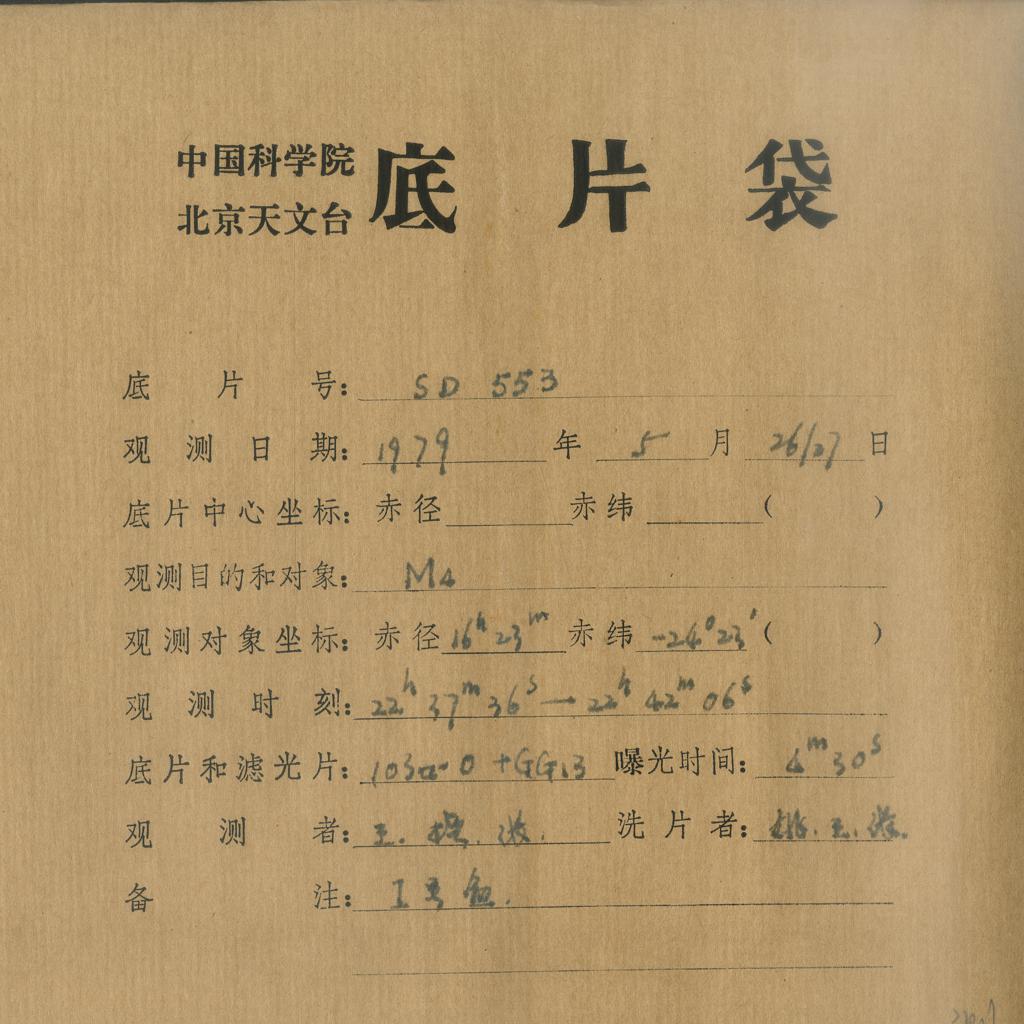 中国科学院
北京天文台
底片袋
底片号: SD 553
观测日期: 1979年 5月 26/27日
底片中心坐标: 赤径 赤纬 ( )
观测目的和对象: M4
观测对象坐标: 赤径 16h 23m 赤纬 -24° 23′ ( )
观测时刻: 22h 37m 36s → 22h 42m 06s
底片和滤光片: 103a-O +GG13 曝光时间: 4m 30s
观测者: 王. 洗片者: 王.
备注: I 号